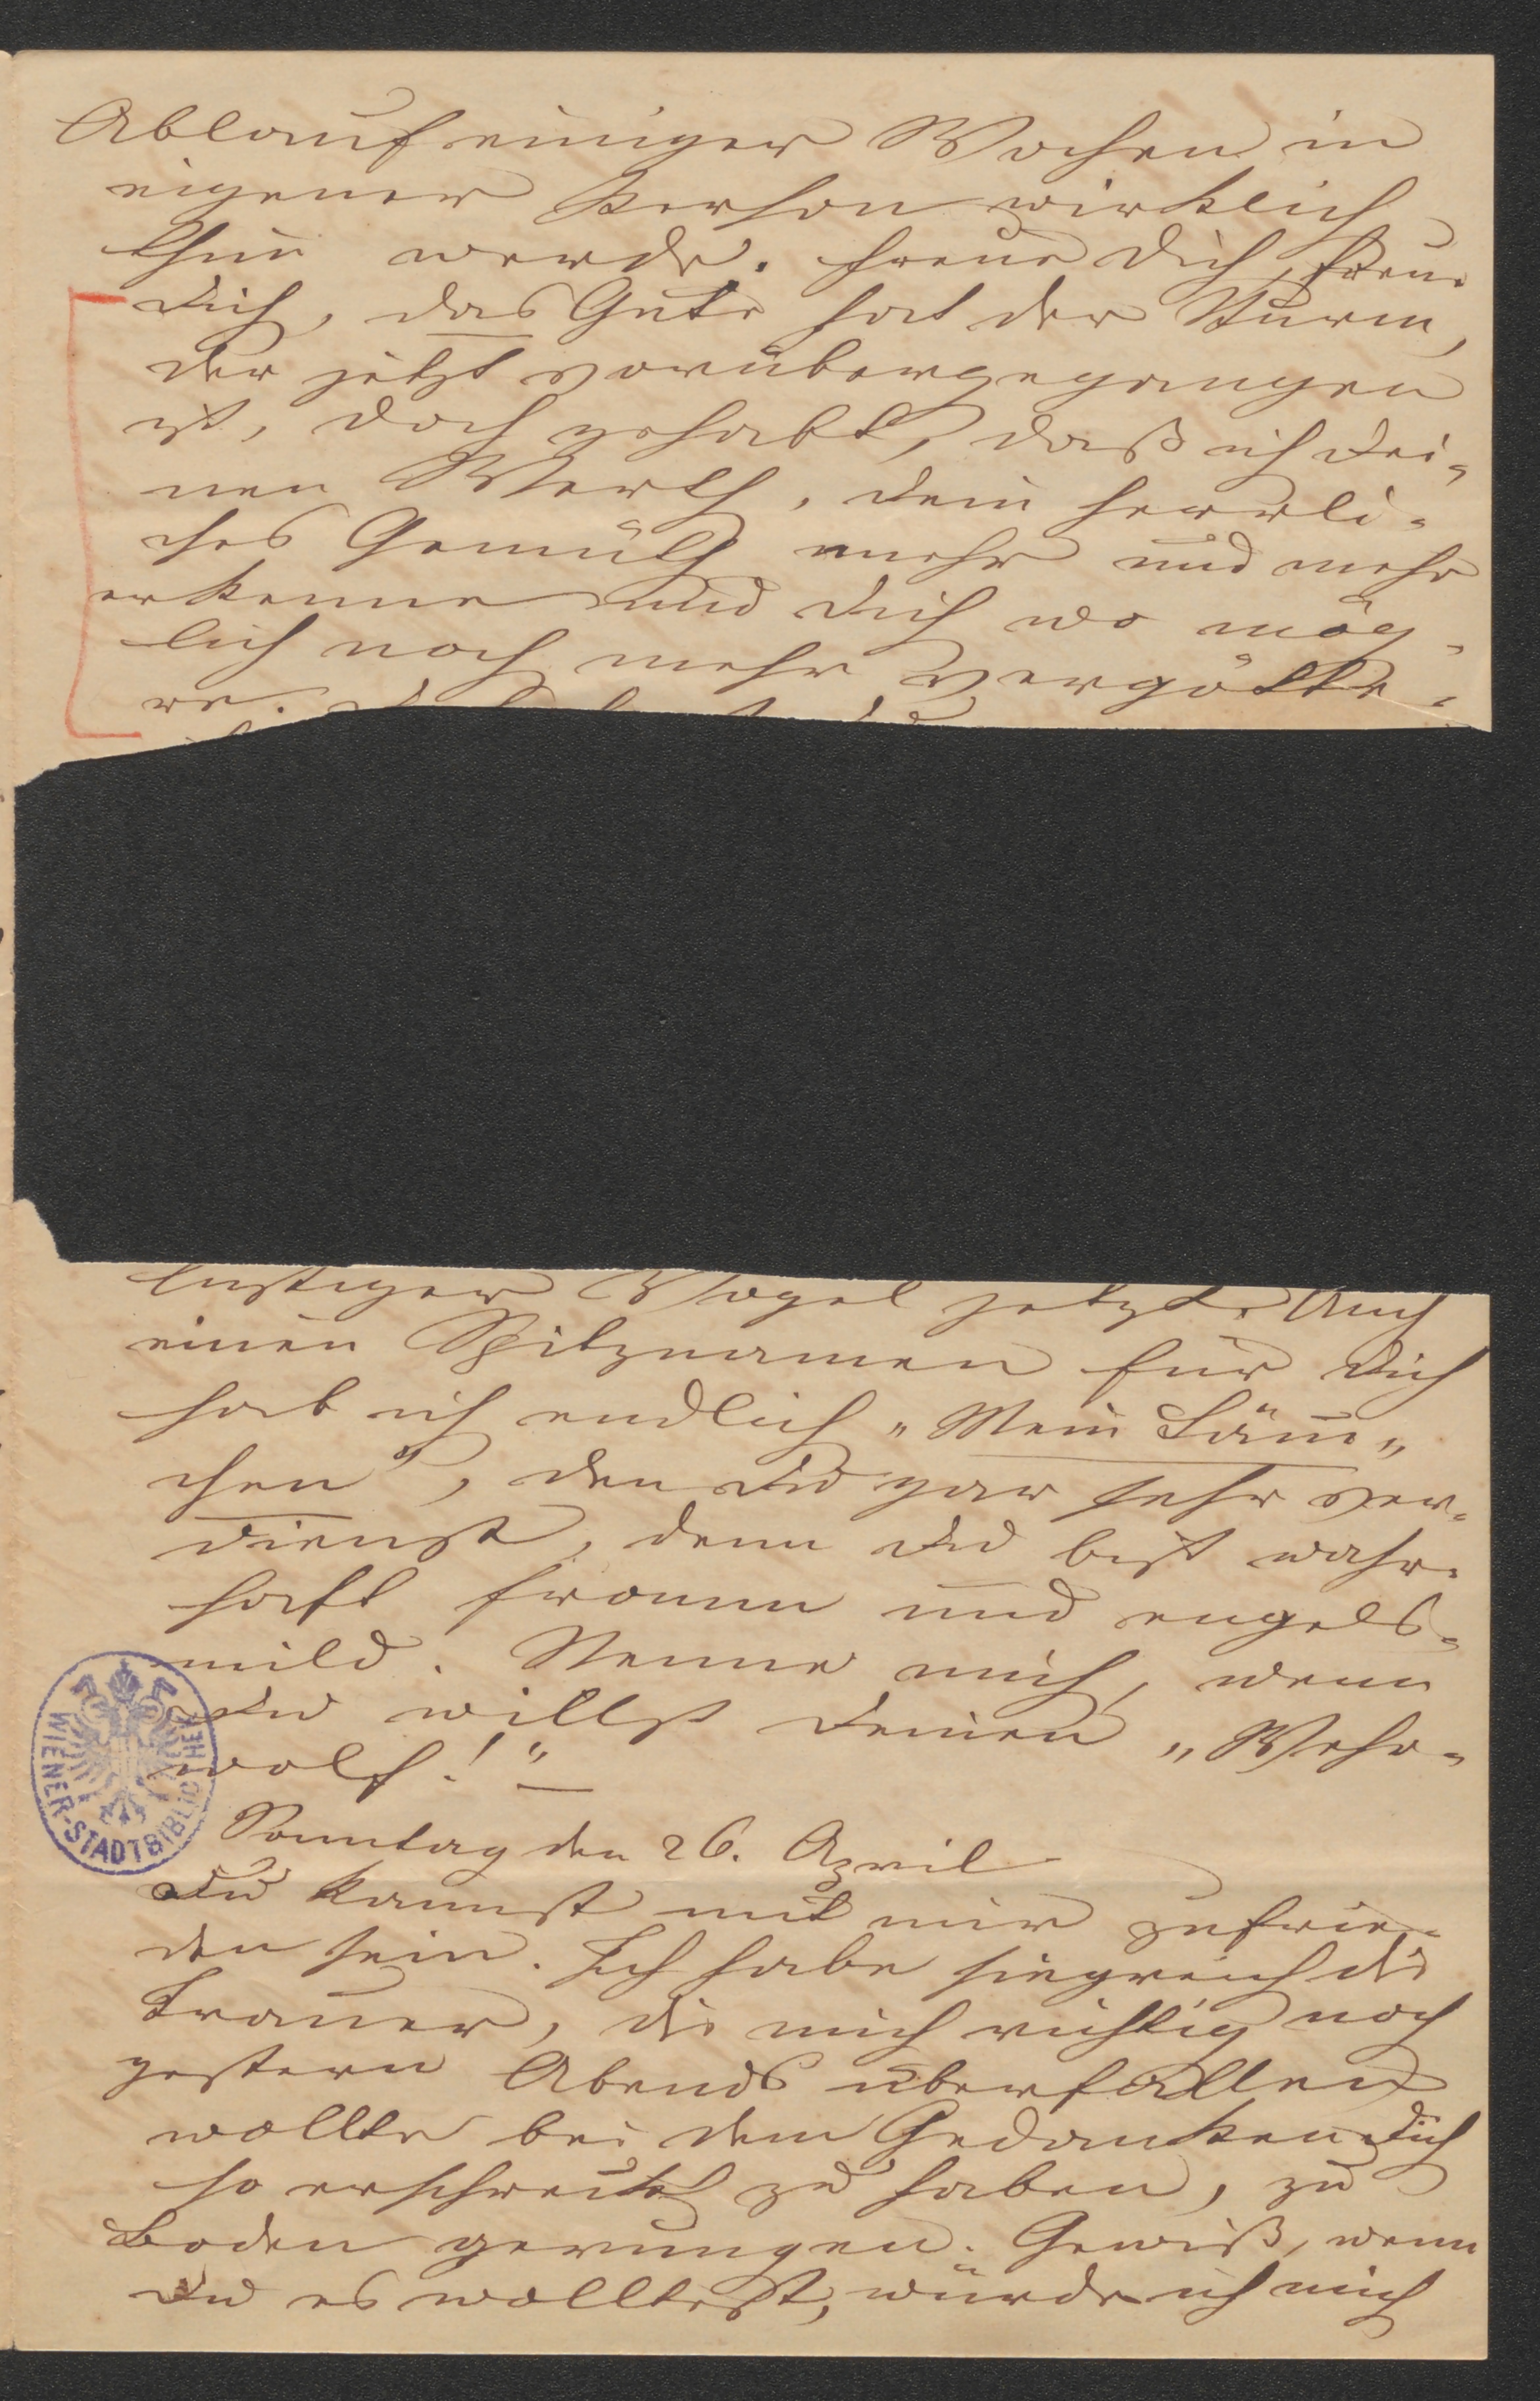 Ablauf einiger Wochen in
eigener Person wirklich
thun werde. Freue Dich, freue
Dich, das Gute hat der Sturm,
der jetzt vorübergegangen
ist, doch gehabt, daß ich Dei-
nen Werth, Dein herrli-
ches Gemüth mehr und mehr
erkenne und Dich wo mög-
lich noch mehr vergötte-
re.
lustiger Vogel jetzt. Auch
einen Spitznamen für Dich
hab ich endlich „Mein Läm̄-
chen“, den Du gar sehr ver-
dienst, denn Du bist wahr-
haft fromm und engels-
mild. Nenne mich, wenn
Du willst Deinen „Wehr-
wolf!“ —
WIENER-STADTBIBLIOTHEK
Sonntag den 26. April
Du kannst mit mir zufrie-
den sein. Ich habe siegreich die
Trauer, die mich richtig noch
gestern Abends überfallen
wollte bei dem Gedanken Dich
so erschreckt zu haben, zu
Boden gerungen. Gewiß, wenn
Du es wolltest, würde ich mich